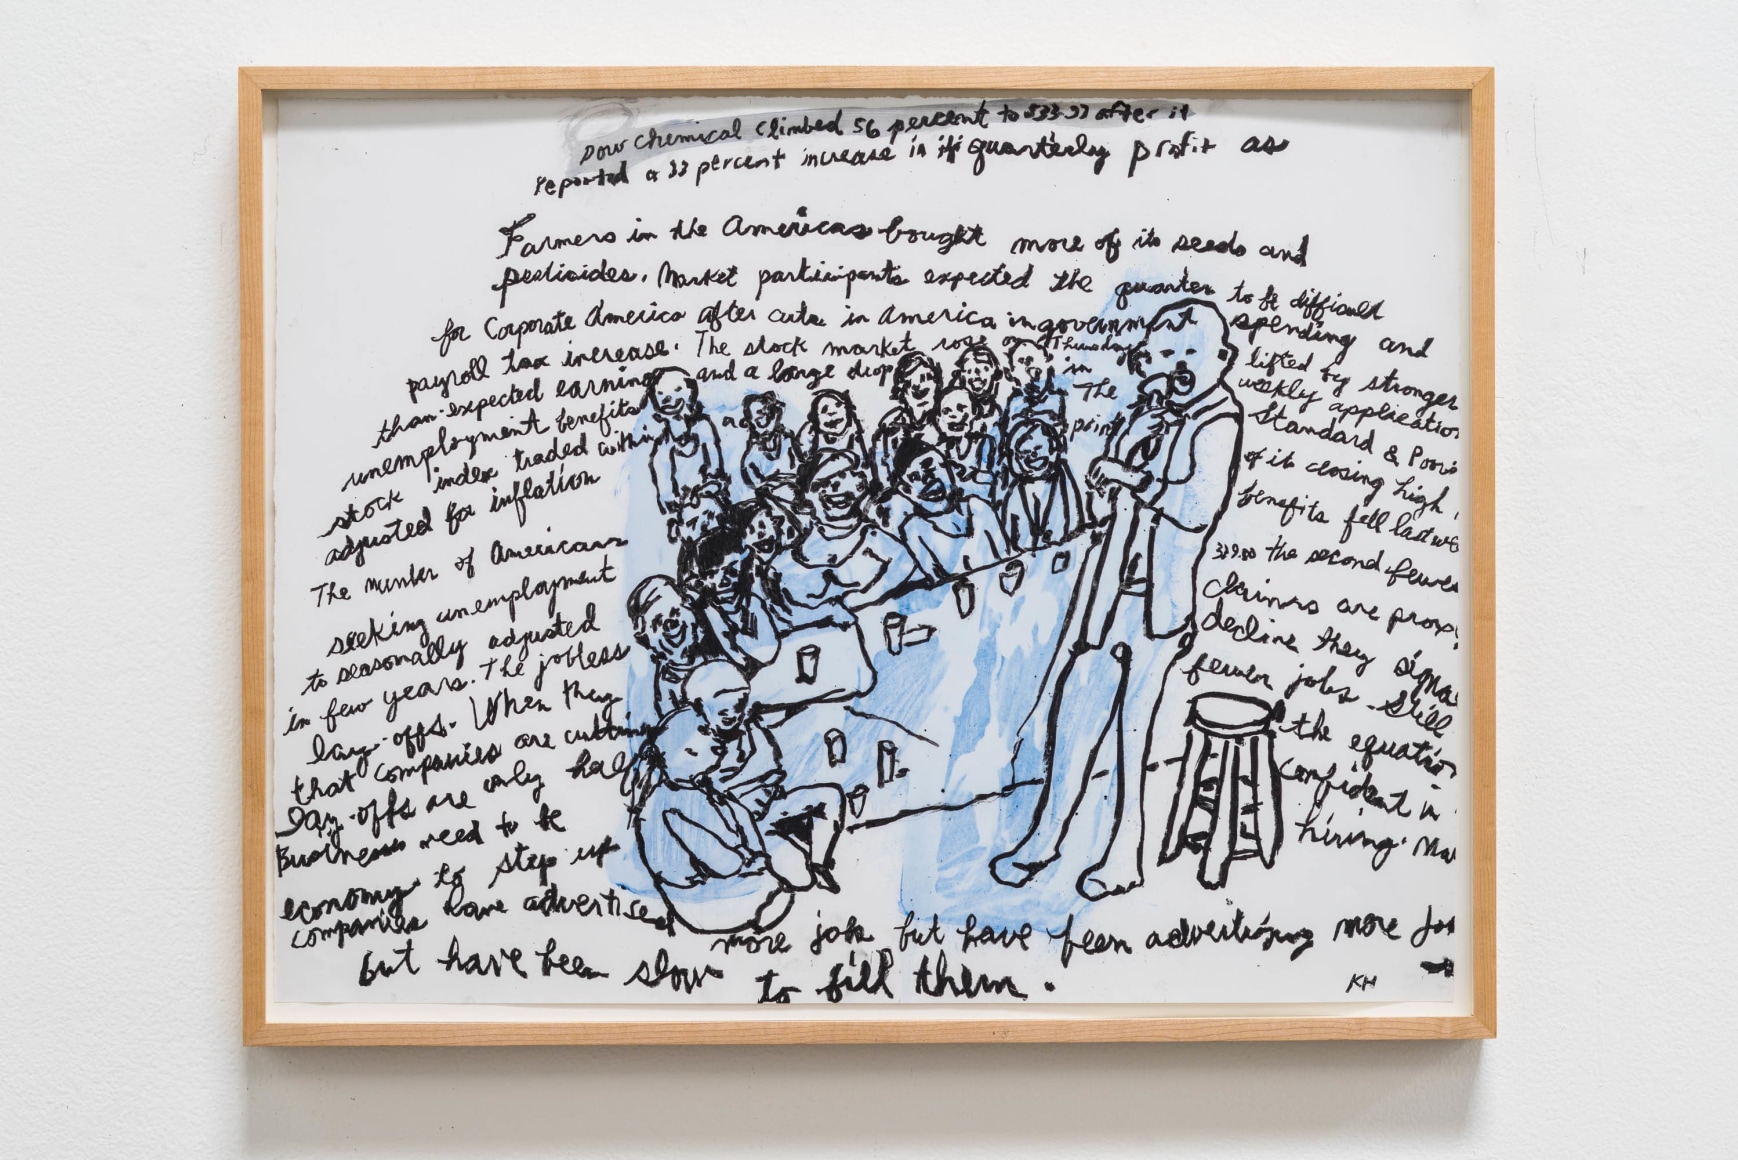 Dow chemical climbed 56 percent to $33.97 after it
reported a 33 percent increase in its quarterly profit as
Farmers in the Americas bought more of its seeds and
pesticides. Market participants expected the quarter to be difficult
for Corporate America after cuts in America in government spending and
payroll tax increase. The stock market rose on Thursday lifted by stronger
than-expected earning and a large drop in weekly application
unemployment benefits The Standard & Poor's
stock index traded within point of its closing high
adjusted for inflation benefits fell last we
The number of Americans the second fewes
seeking unemployment claims are prox
to seasonally adjusted decline they signa
in few years. The jobless fewer jobs. Still
lay-offs. When they the equation
that companies are cutting confident in
lay-offs are only half hiring. Ma
Business need to be
economy to step up
companies have advertised more job but have been advertising more
but have been slow to fill them.
KH